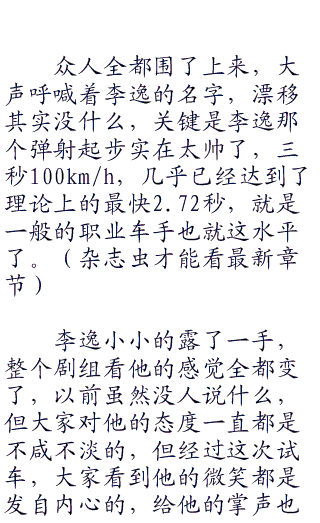 众人全都围了上来，大
声呼喊着李逸的名字，漂移
其实没什么，关键是李逸那
个弹射起步实在太帅了，三
秒100km/h，几乎已经达到了
理论上的最快2.72秒，就是
一般的职业车手也就这水平
了。（杂志虫才能看最新章
节）
李逸小小的露了一手，
整个剧组看他的感觉全都变
了，以前虽然没人说什么，
但大家对他的态度一直都是
不咸不淡的，但经过这次试
车，大家看到他的微笑都是
发自内心的，给他的掌声也